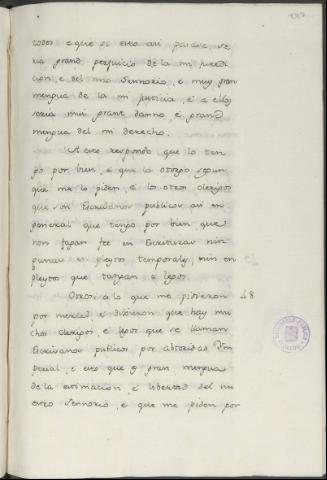 todos e que si esto asi pasase, se
ria grand perjuicio de la mi juredi
cion, e del mio Sennorio, e muy gran
mengua de la mi justicia, e a ellos
seria mui grant danno e grand
mengua del mi derecho.
A esto respondo que lo ten
go por bien, e que lo otorgo segun
que me lo piden e lo otros clerigos
que son Escribanos publicos asi en
general que tengo por bien que
non fagan fee en Escrituras nin
gunas en pleytos temporales, nin en
pleytos que tangan a legos.
Otrosi a lo que me pidieron 48
por merced e dixieron que hay mu
chos clerigos, e legos que se llaman
Escrivanos publicos por abtoridat Im
perial, e esto que es gran mengua
de la estimacion, e libertad del nu
estro Sennorio, e que me piden por